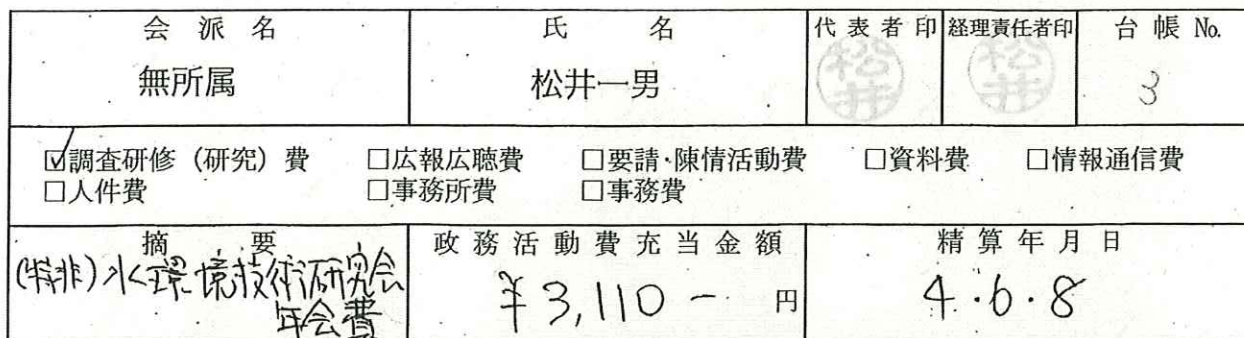 会派名 氏名 代表者印 経理責任者印 台帳No.
無所属 松井一男 松井 松井 3
☑調査研修(研究)費 □広報広聴費 □要請・陳情活動費 □資料費 □情報通信費
□人件費 □事務所費 □事務費
摘要 政務活動費充当金額 精算年月日
(特非)水環境技術研究会 ¥3,110- 円 4・6・8
年会費